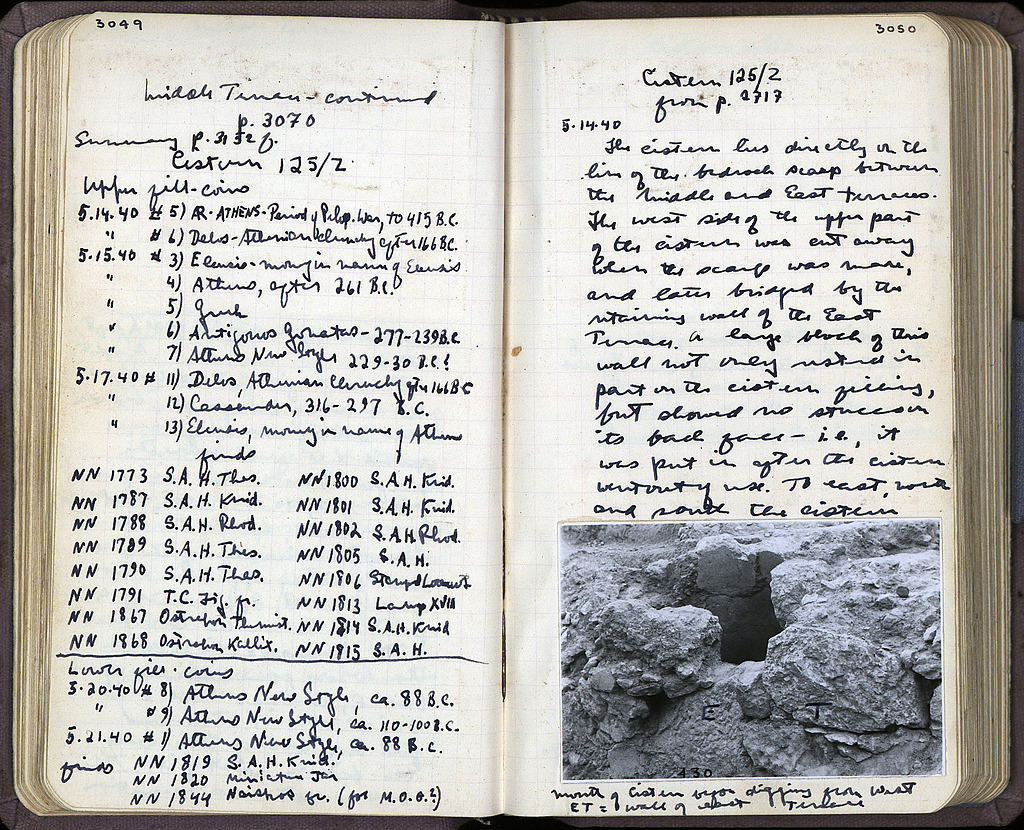 3049
Middle Terrace - continued
p. 3070
Summary p. 3132 f.
Cistern 125/2.
Upper fill - coins
5.14.40 # 5) AR - ATHENS - Period of Pelop. War, to 415 B.C.
" # 6) Delos - Athenian cleruchy after 166 B.C.
5.15.40 # 3) Eleusis - money in name of Eleusis
" 4) Athens, after 261 B.C.
" 5) Greek
" 6) Antigonos Gonatas - 277-239 B.C.
" 7) Athens New Style 229-30 B.C.?
5.17.40 # 11) Delos, Athenian cleruchy after 166 B.C
" 12) Cassander, 316-297 B.C.
" 13) Eleusis, money in name of Athens
finds
NN 1773 S.A.H. Thas. NN 1800 S.A.H. Knid.
NN 1787 S.A.H. Knid. NN 1801 S.A.H. Knid.
NN 1788 S.A.H. Rhod. NN 1802 S.A.H. Rhod.
NN 1789 S.A.H. Thas. NN 1805 S.A.H.
NN 1790 S.A.H. Thas. NN 1806 Stamped
NN 1791 T.C. Fig. fr. NN 1813 Lamp XVIII
NN 1867 Ostrakon Themist. NN 1814 S.A.H. Knid
NN 1868 Ostrakon Kallix. NN 1815 S.A.H.
Lower fill - coins
5.20.40 # 8) Athens New Style, ca. 88 B.C.
" # 9) Athens New Style, ca. 110-100 B.C.
5.21.40 # 1) Athens New Style, ca. 88 B.C.
finds NN 1819 S.A.H. Knid.
NN 1820 Miniature Jar
NN 1844 fr. (for M.O.G.?)
3050
Cistern 125/2
from p. 2717
5.14.40
The cistern lies directly on the
line of the bedrock scarp between
the Middle and East Terraces.
The west side of the upper part
of the cistern was cut away
when the scarp was made,
and later bridged by the
retaining wall of the East
Terrace. A large block of this
wall not only rested in
part on the cistern filling,
but showed no stucco on
its back face - i.e., it
was put in after the cistern
went out of use. To east, north
and south the cistern
E T
430
mouth of cistern before digging from west
ET = wall of east Terrace